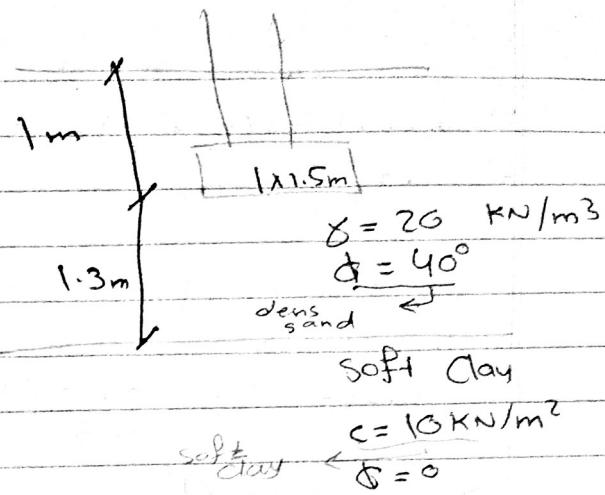 1m
1x1.5m
γ = 20 KN/m³
ϕ = 40°
1.3m
dens sand
soft Clay
c = 10 KN/m²
soft clay
ϕ = 0